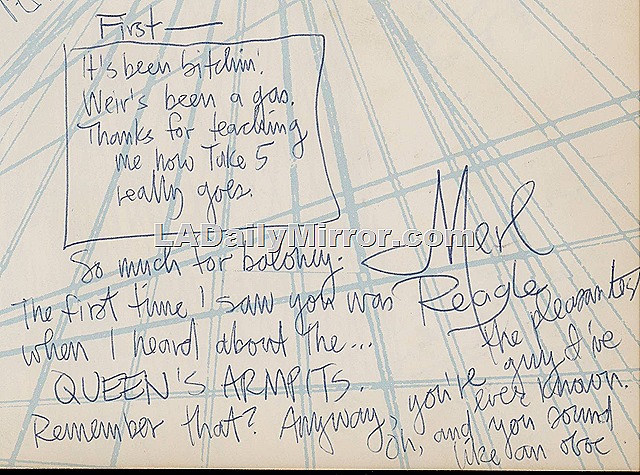 First —
It's been bitchin'.
Weir's been a gas.
Thanks for teaching
me how Take 5
really goes.
LADailyMirror.com
So much for baloney.
Merl
Reagle
The first time I saw you was
when I heard about the...
QUEEN'S ARMPITS.
Remember that? Anyway, you're
the pleasantest
guy I've
ever known.
Oh, and you sound
like an oboe